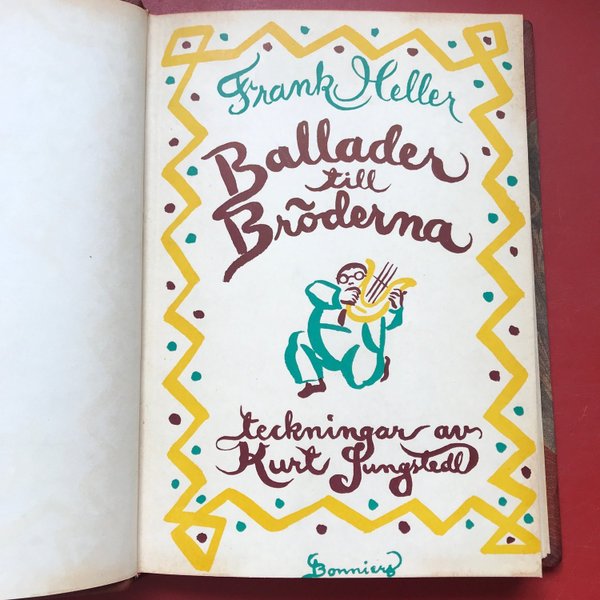 Frank Heller
Ballader
till
Bröderna
teckningar av
Kurt Jungstedt
Bonniers